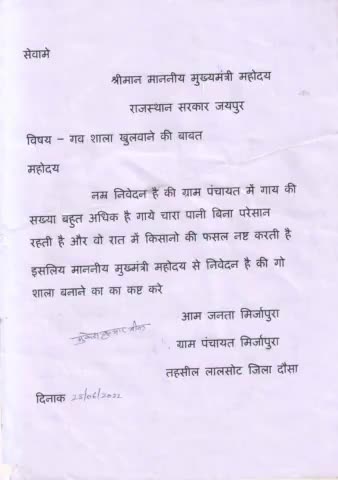 सेवामे
श्रीमान माननीय मुख्यमंत्री महोदय
राजस्थान सरकार जयपुर
विषय – गव शाला खुलवाने की बाबत
महोदय
नम्र निवेदन है की ग्राम पंचायत में गाय की
सख्या बहुत अधिक है गाये चारा पानी बिना परेसान
रहती है और वो रात में किसानो की फसल नष्ट करती है
इसलिय माननीय मुख्मंत्री महोदय से निवेदन है की गो
शाला बनाने का का कष्ट करे
आम जनता मिर्जापुरा
ग्राम पंचायत मिर्जापुरा
तहसील लालसोट जिला दौसा
दिनाक 22/06/2022